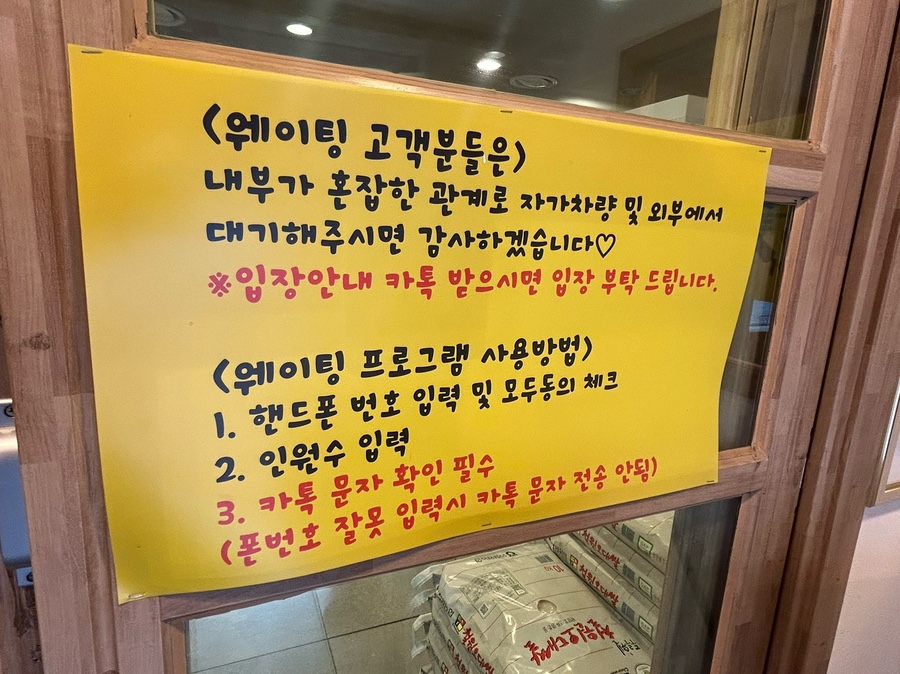 <웨이팅 고객분들은>
내부가 혼잡한 관계로 자가차량 및 외부에서
대기해주시면 감사하겠습니다♡
※입장안내 카톡 받으시면 입장 부탁 드립니다.
<웨이팅 프로그램 사용방법>
1. 핸드폰 번호 입력 및 모두동의 체크
2. 인원수 입력
3. 카톡 문자 확인 필수
(폰번호 잘못 입력시 카톡 문자 전송 안됨)
철원오대쌀